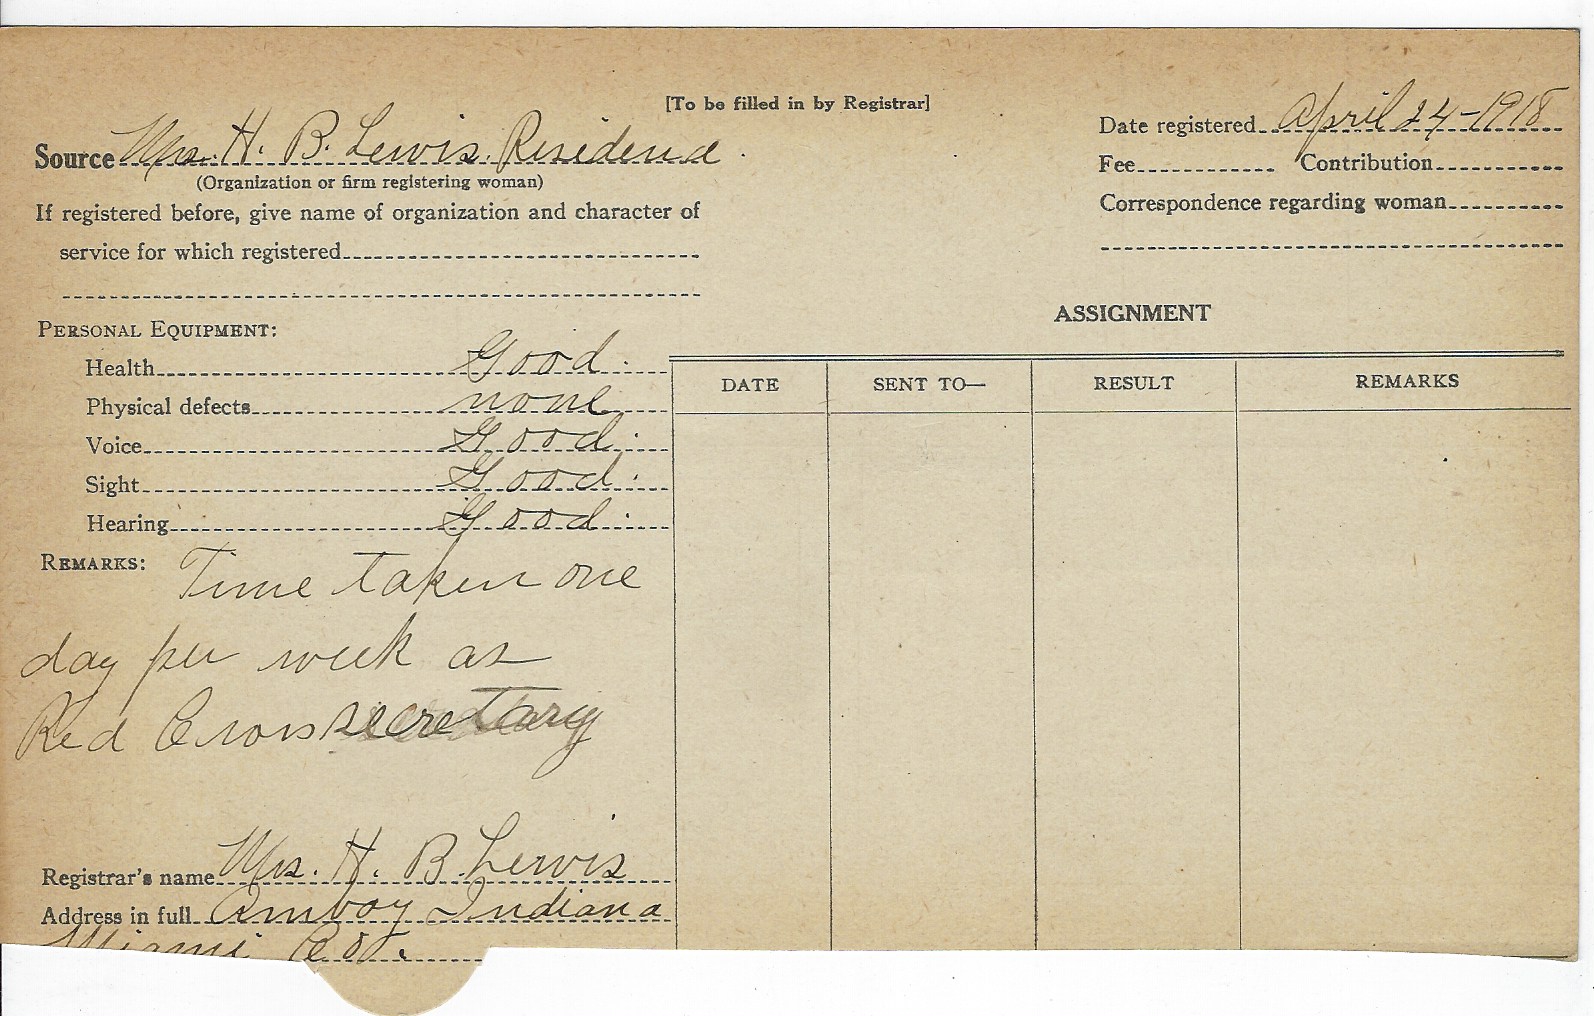 [To be filled in by Registrar]
Source Mrs. H. B. Lewis. Residence.
(Organization or firm registering woman)
If registered before, give name of organization and character of
service for which registered
Date registered April 24-1918
Fee Contribution
Correspondence regarding woman
PERSONAL EQUIPMENT:
Health Good.
Physical defects none
Voice Good.
Sight Good.
Hearing Good.
REMARKS: Time taken one
day per week as
Red Cross secretary
Registrar's name Mrs. H. B. Lewis
Address in full Amboy Indiana
Miami Co.
ASSIGNMENT
DATE SENT TO— RESULT REMARKS